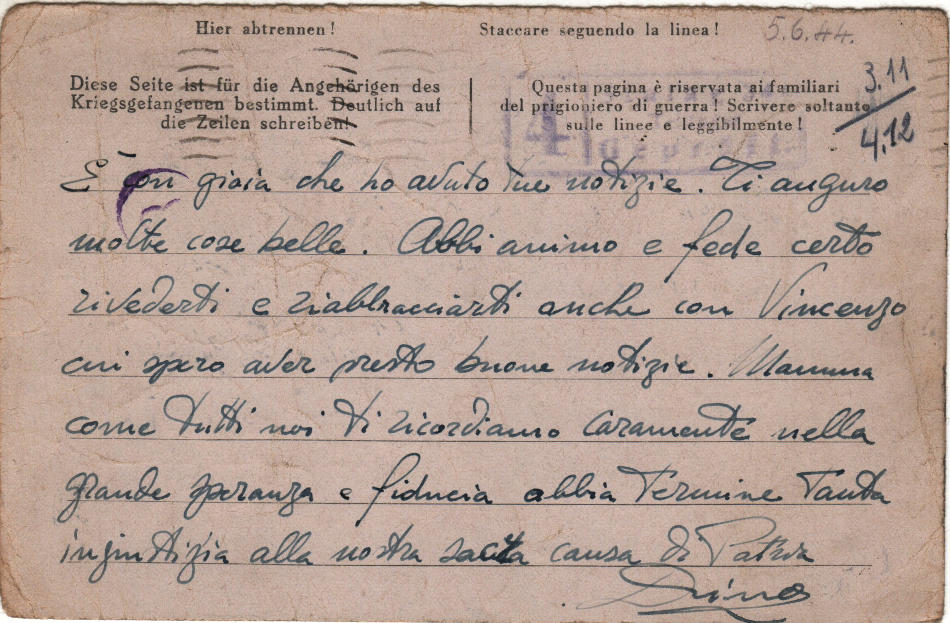 Hier abtrennen! Staccare seguendo la linea! 5.6.44.
Diese Seite ist für die Angehörigen des
Kriegsgefangenen bestimmt. Deutlich auf
die Zeilen schreiben!
Questa pagina è riservata ai familiari
del prigioniero di guerra! Scrivere soltanto
sulle linee e leggibilmente!
3.11
4.12
4
È con gioia che ho avuto tue notizie. Ti auguro
molte cose belle. Abbi animo e fede certo
rivederti e riabbracciarti anche con Vincenzo
cui spero aver presto buone notizie. Mamma
come tutti noi ti ricordiamo caramente nella
grande speranza e fiducia abbia termine tanta
ingiustizia alla nostra causa di Patria